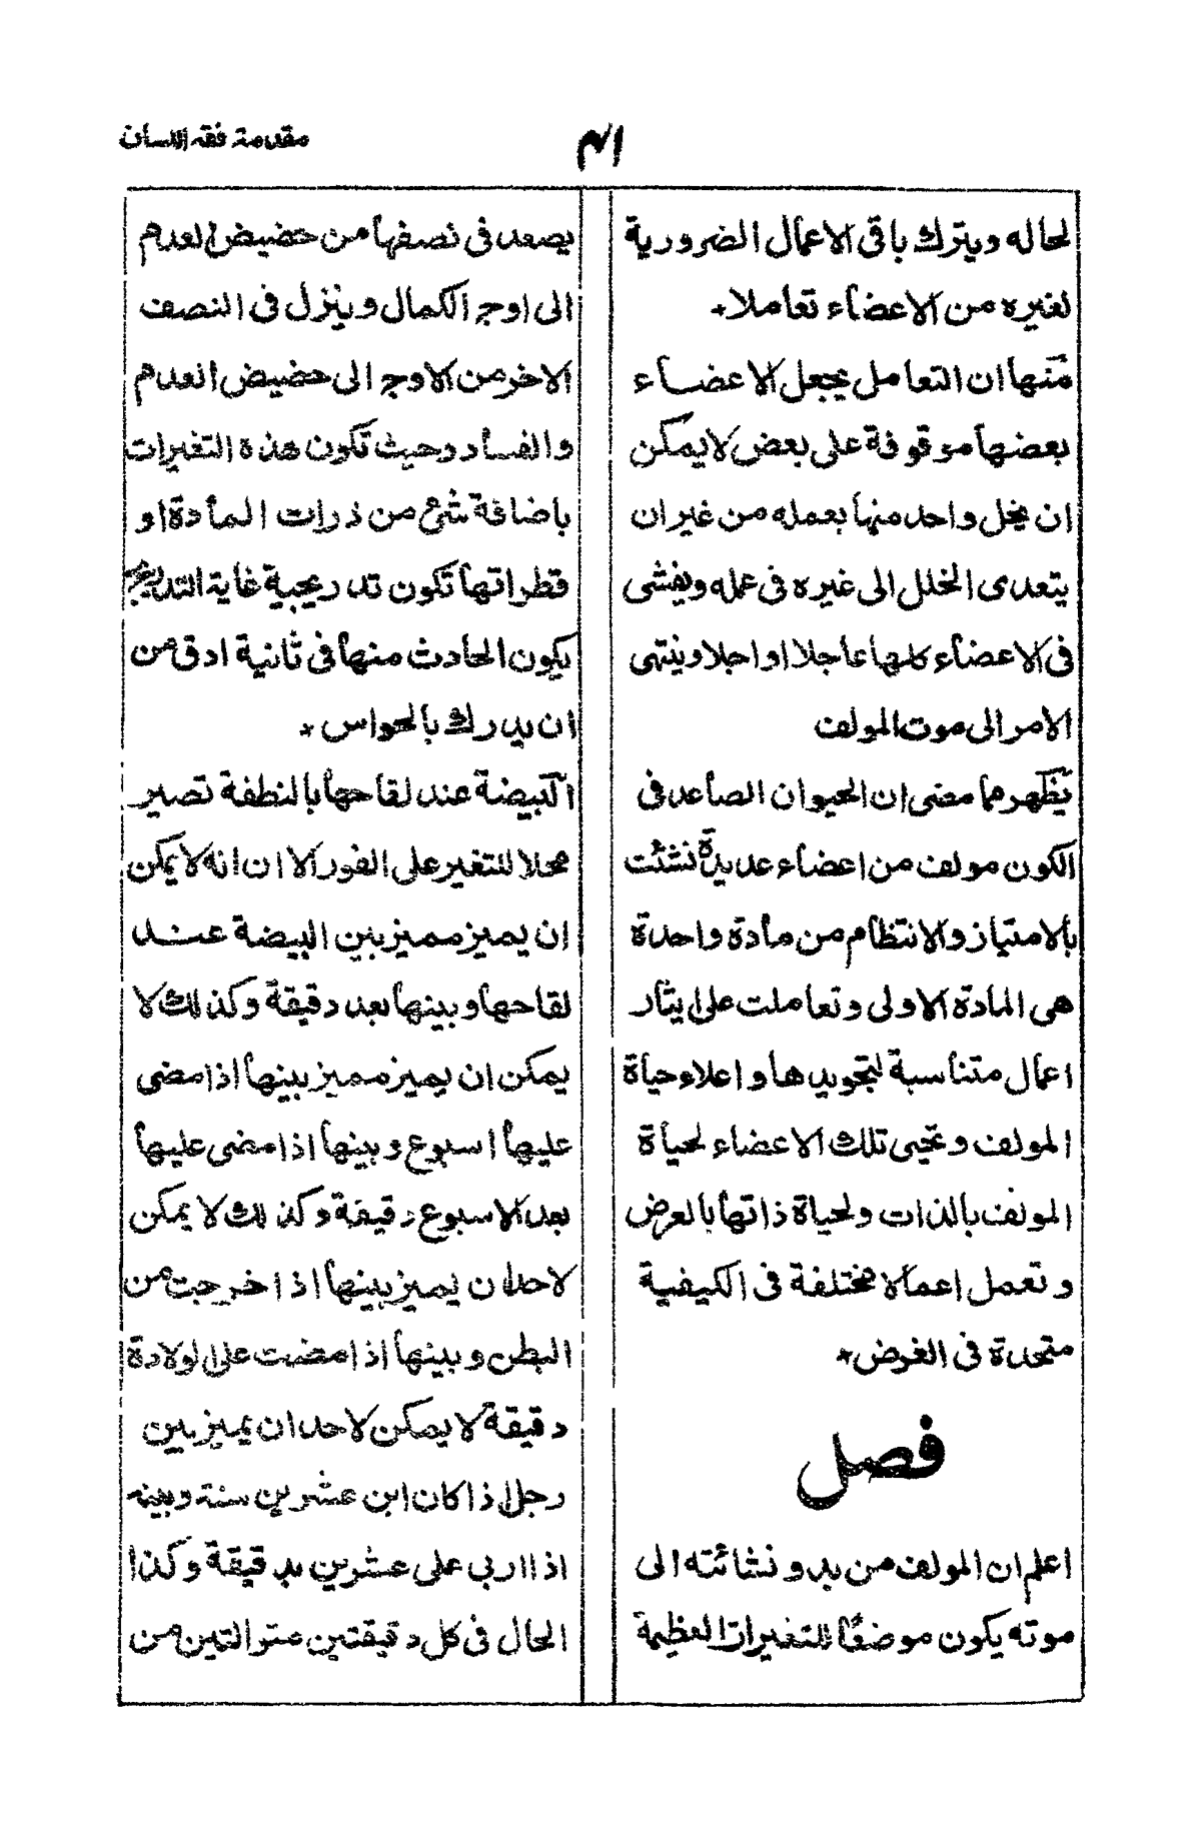 مقدمة فقه اللسان
لحاله ويترك باقى الاعمال الضرورية
لغيره من الاعضاء تعاملا٭
منها ان التعامل يجعل الاعضاء
بعضها موقوفة على بعض لا يمكن
ان يخل واحد منها بعمله من غير ان
يتعدى الخلل الى غيره فى عمله ويفشى
فى الاعضاء كلها عاجلا او اجلا وينتهى
الامر الى موت المولف
يظهر مما مضى ان الحيوان الصاعد فى
الكون مولف من اعضاء عديدة نشئت
بالامتياز والانتظام من مادة واحدة
هى المادة الاولى وتعاملت على ايثار
اعمال متناسبة لتجويدها واعلاء حياة
المولف وتحيى تلك الاعضاء لحياة
المولف بالذات ولحياة ذاتها بالعرض
وتعمل اعمالا مختلفة فى الكيفية
متحدة فى الغرض٭
فصل
اعلم ان المولف من بدو نشائته الى
موته يكون موضعًا للتغيرات العظيمة
يصعد فى نصفها من حضيض العدم
الى اوج الكمال وينزل فى النصف
الاخر من الاوج الى حضيض العدم
والفساد وحيث تكون هذه التغيرات
باضافة شئ من ذرات المادة او
قطراتها تكون تدريجية غاية التدريج
يكون الحادث منها فى ثانية ادق من
ان يدرك بالحواس ٭
البيضة عند لقاحها بالنطفة تصير
محلا للتغير على الفور الا ان انه لا يمكن
ان يميز مميز بين البيضة عند
لقاحها وبينها بعد دقيقة وكذلك لا
يمكن ان يميز مميز بينها اذا مضى
عليها اسبوع وبينها اذا مضى عليها
بعد الاسبوع دقيقة وكذلك لا يمكن
لاحد ان يميز بينها اذا خرجت من
البطن وبينها اذا مضت على الولادة
دقيقة لا يمكن لاحد ان يميز بين
رجل اذا كان ابن عشرين سنة وبينه
اذا اربى على عشرين بدقيقة وكذا
الحال فى كل دقيقتين متوالتين من